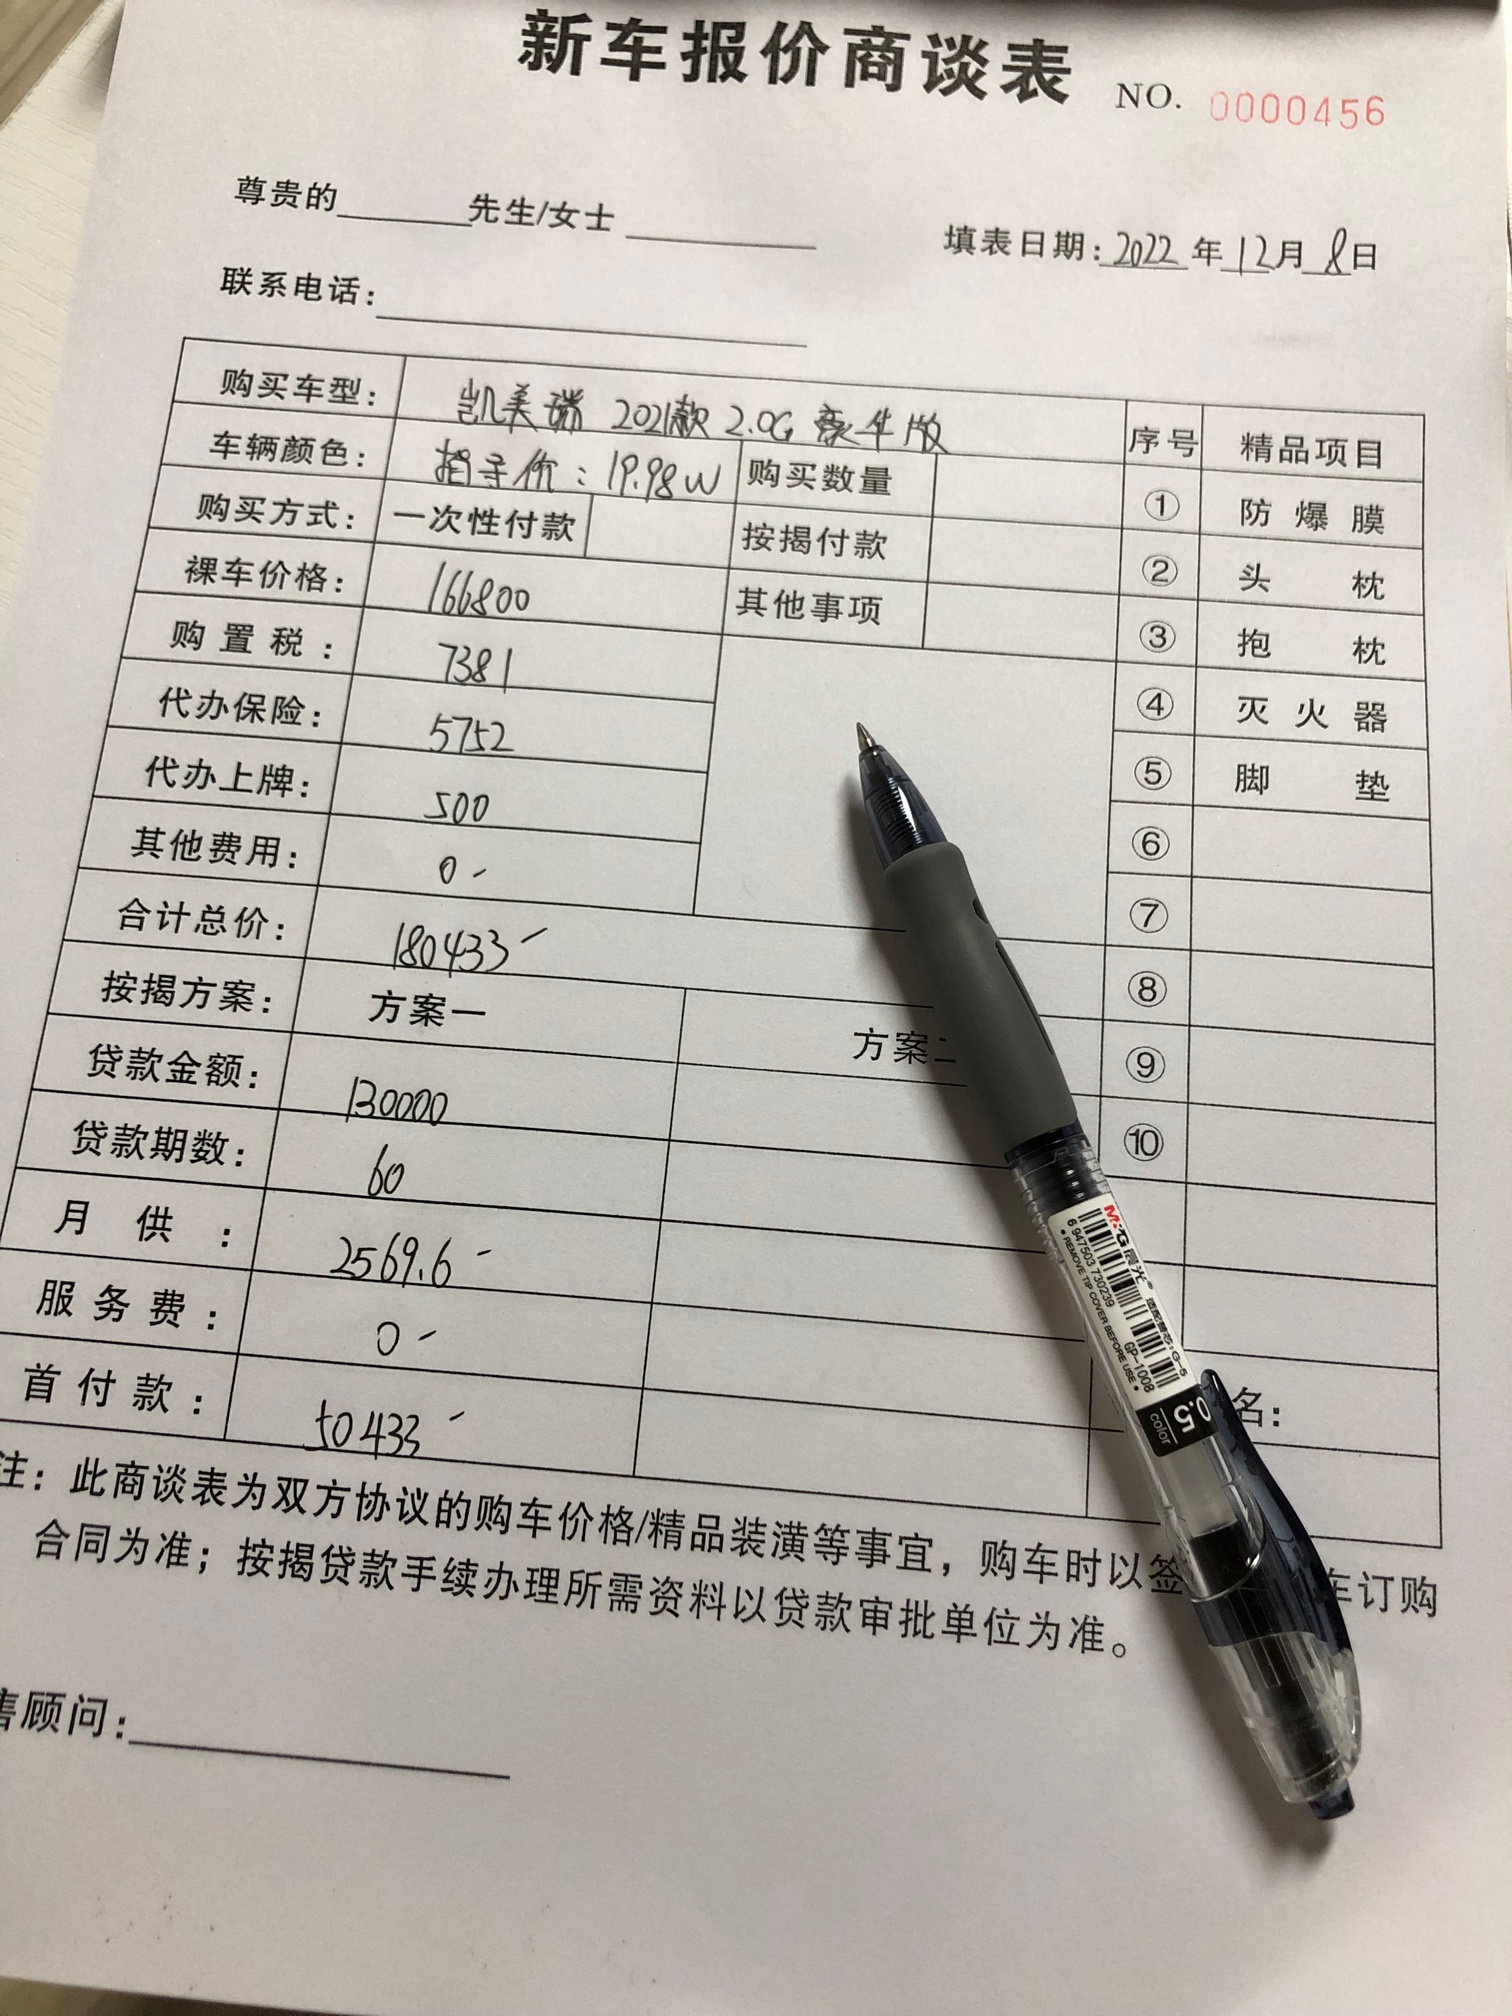 新车报价商谈表 NO. 0000456
尊贵的______先生/女士________ 填表日期:2022年12月8日
联系电话:
购买车型: 凯美瑞 2021款 2.0G 豪华版 序号 精品项目
车辆颜色: 指导价:19.98W 购买数量 ① 防爆膜
购买方式: 一次性付款 按揭付款 ② 头枕
裸车价格: 166800 其他事项 ③ 抱枕
购置税: 7381 ④ 灭火器
代办保险: 5752 ⑤ 脚垫
代办上牌: 500 ⑥
其他费用: 0- ⑦
合计总价: 180433- ⑧
按揭方案: 方案一 方案二 ⑨
贷款金额: 130000 ⑩
贷款期数: 60
月供: 2569.6-
服务费: 0-
首付款: 50433-
名:
注: 此商谈表为双方协议的购车价格/精品装潢等事宜,购车时以签 车订购
合同为准;按揭贷款手续办理所需资料以贷款审批单位为准。
售顾问:
M&G 晨光
6 947503 730239
GP-1008
• REMOVE TIP COVER BEFORE USE •
0.5
color